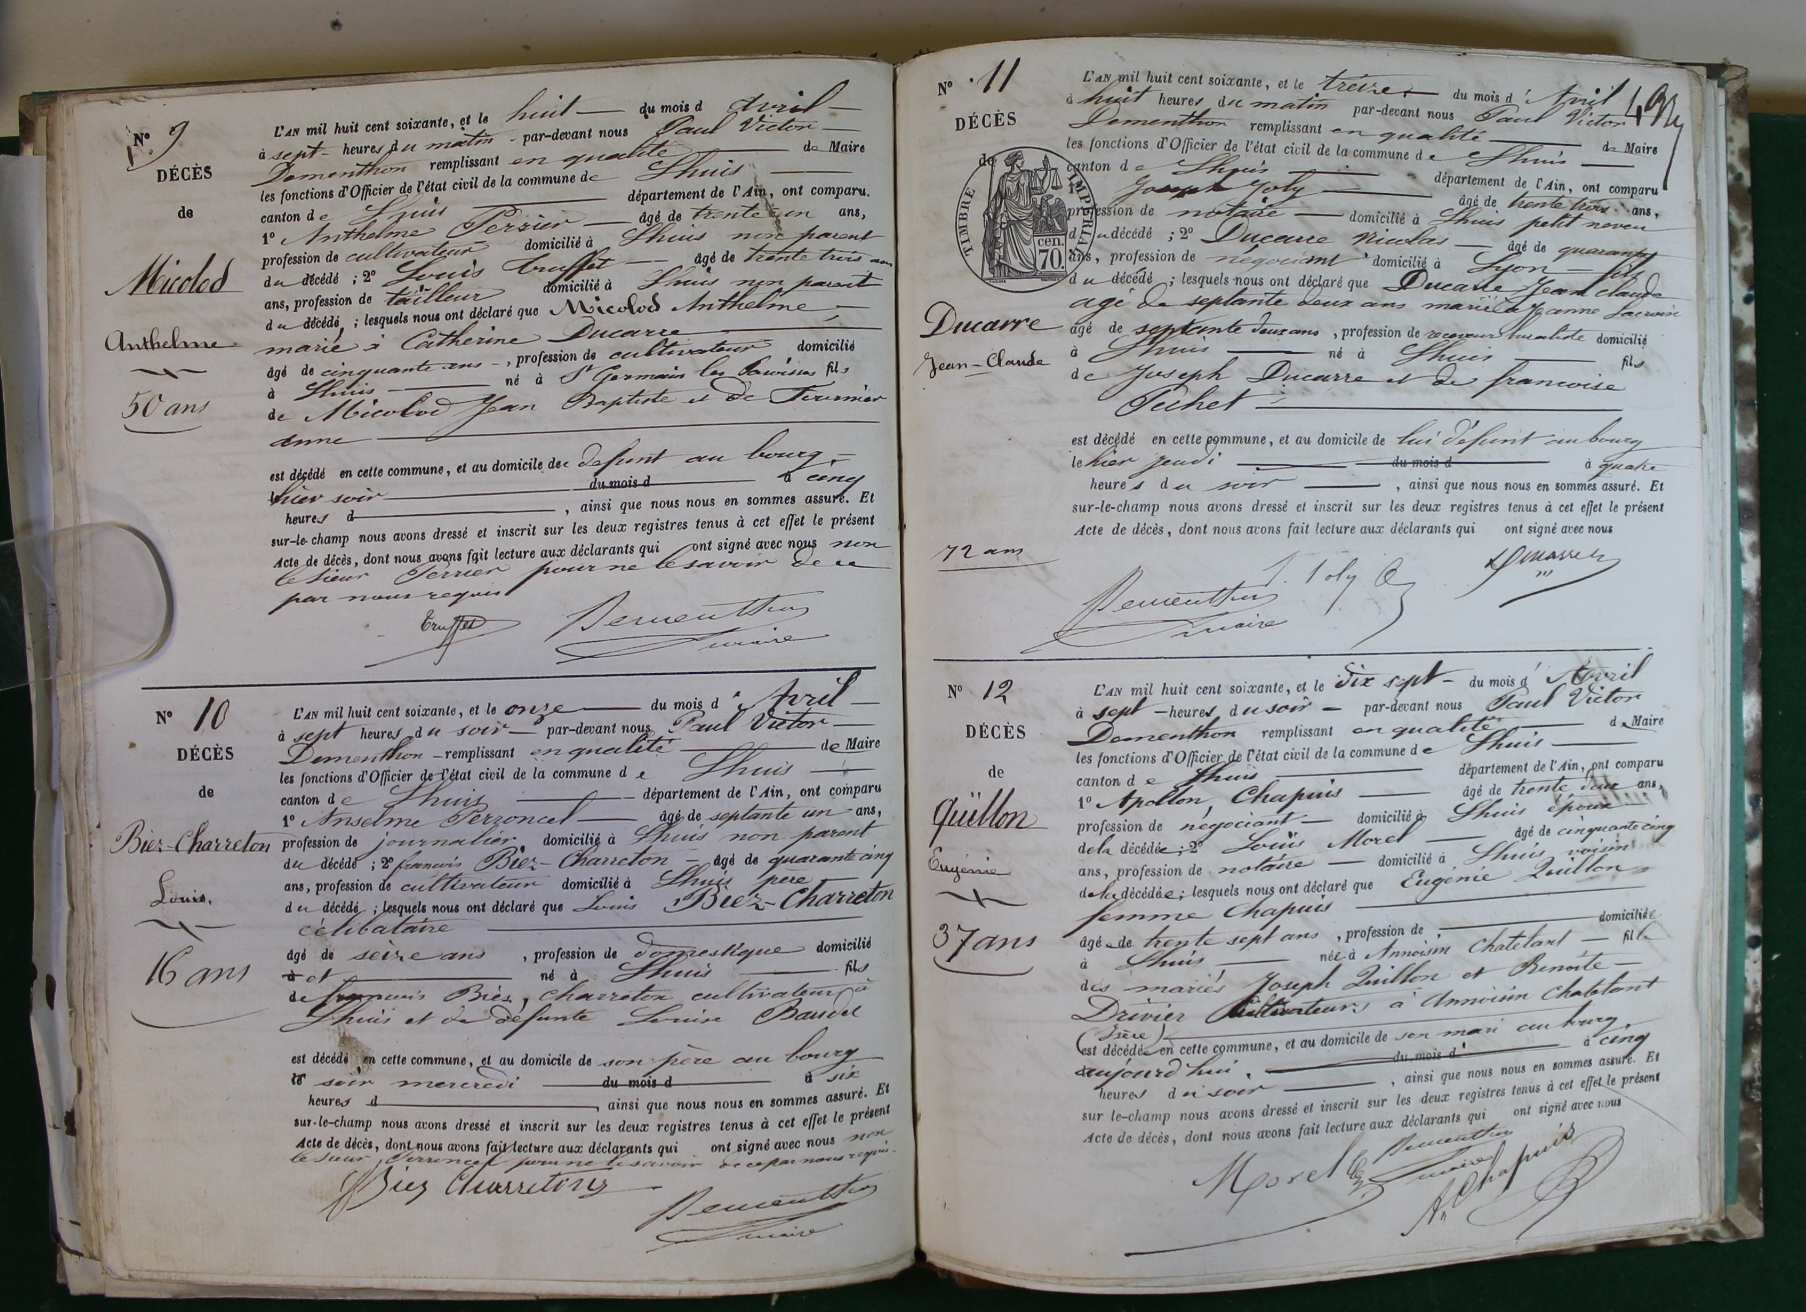 N° 9
DÉCÈS
de
Micolod
Anthelme
50 ans
L'AN mil huit cent soixante, et le huit du mois d Avril
à sept heures du matin par-devant nous Paul Victor
Dementhon remplissant en qualité de Maire
les fonctions d'Officier de l'état civil de la commune de Lhuis
canton de Lhuis département de l'Ain, ont comparu
1° Anthelme Perrier âgé de trente un ans,
profession de cultivateur domicilié à Lhuis non parent
du décédé ; 2° Louis truffet âgé de trente trois ans
ans, profession de tailleur domicilié à Lhuis non parent
du décédé ; lesquels nous ont déclaré que Micolod Anthelme
marié à Catherine Ducarre
âgé de cinquante ans, profession de cultivateur domicilié
à Lhuis né à St Germain les Paroisses fils
de Micolod Jean Baptiste et de Fournier
anne
est décédé en cette commune, et au domicile de defunt au bourg
hier soir du mois d à cinq
heures d , ainsi que nous nous en sommes assuré. Et
sur-le-champ nous avons dressé et inscrit sur les deux registres tenus à cet effet le présent
Acte de décès, dont nous avons fait lecture aux déclarants qui ont signé avec nous non
le sieur Perrier pour ne le savoir de ce
par nous requis
Truffet Dementhon
maire
N° 10
DÉCÈS
de
Biez-Charreton
Louis.
16 ans
L'AN mil huit cent soixante, et le onze du mois d' Avril
à sept heures du soir par-devant nous Paul Victor
Dementhon remplissant en qualité de Maire
les fonctions d'Officier de l'état civil de la commune de Lhuis
canton de Lhuis département de l'Ain, ont comparu
1° Anselme Perroncel âgé de septante un ans,
profession de journalier domicilié à Lhuis non parent
du décédé ; 2° francois Biez-Charreton âgé de quarante cinq
ans, profession de cultivateur domicilié à Lhuis père
du décédé ; lesquels nous ont déclaré que Louis Biez-Charreton
célibataire
âgé de seize ans, profession de domestique domicilié
à et né à Lhuis fils
de francois Biez, Charreton cultivateur à
Lhuis et de défunte Louise Baudet
est décédé en cette commune, et au domicile de son père au bourg
le soir mercredi du mois d à six
heures d , ainsi que nous nous en sommes assuré. Et
sur-le-champ nous avons dressé et inscrit sur les deux registres tenus à cet effet le présent
Acte de décès, dont nous avons fait lecture aux déclarants qui ont signé avec nous non
le sieur Perroncel pour ne le savoir de ce par nous requis
Biez Charreton
Dementhon
maire
N° 11
DÉCÈS
de
TIMBRE IMPÉRIAL
cen.
70.
Ducarre
Jean-Claude
72 ans
L'AN mil huit cent soixante, et le treize du mois d' Avril
à huit heures du matin par-devant nous Paul Victor
Dementhon remplissant en qualité de Maire
les fonctions d'Officier de l'état civil de la commune de Lhuis
canton de Lhuis département de l'Ain, ont comparu
1° Joseph Joly âgé de trente trois ans,
profession de notaire domicilié à Lhuis petit neveu
du décédé ; 2° Ducarre Nicolas âgé de quarante
ans, profession de négociant domicilié à Lyon fils
du décédé ; lesquels nous ont déclaré que Ducarre Jean claude
agé de septante deux ans marié à Jeanne Lacroix
âgé de septante deux ans, profession de receveur buraliste domicilié
à Lhuis né à Lhuis fils
de Joseph Ducarre et de francoise
Pichet
est décédé en cette commune, et au domicile de lui défunt au bourg
le hier jeudi du mois d à quatre
heures du soir , ainsi que nous nous en sommes assuré. Et
sur-le-champ nous avons dressé et inscrit sur les deux registres tenus à cet effet le présent
Acte de décès, dont nous avons fait lecture aux déclarants qui ont signé avec nous
Dementhon J. Joly Ducarre
maire
N° 12
DÉCÈS
de
Qüillon
Eugénie
37 ans
L'AN mil huit cent soixante, et le dix sept du mois d' Avril
à sept heures du soir par-devant nous Paul Victor
Dementhon remplissant en qualité de Maire
les fonctions d'Officier de l'état civil de la commune de Lhuis
canton de Lhuis département de l'Ain, ont comparu
1° Apollon, Chapuis âgé de trente deux ans,
profession de négociant domicilié à Lhuis époux
de la décédée ; 2° Loüis Morel âgé de cinquante cinq
ans, profession de notaire domicilié à Lhuis voisin
de la décédée ; lesquels nous ont déclaré que Eugénie Quillon
femme Chapuis
âgée de trente sept ans, profession de , domiciliée
à Lhuis née à Annoisin Chatelant fille
des mariés Joseph Quillon et Benoite
Drivier Cultivateurs à Annoisin Chatelant
(Isère)
est décédée en cette commune, et au domicile de son mari au bourg,
aujourd'hui, du mois d' à cinq
heures du soir , ainsi que nous nous en sommes assuré. Et
sur le-champ nous avons dressé et inscrit sur les deux registres tenus à cet effet le présent
Acte de décès, dont nous avons fait lecture aux déclarants qui ont signé avec nous
Morel Dementhon
maire
An Chapuis